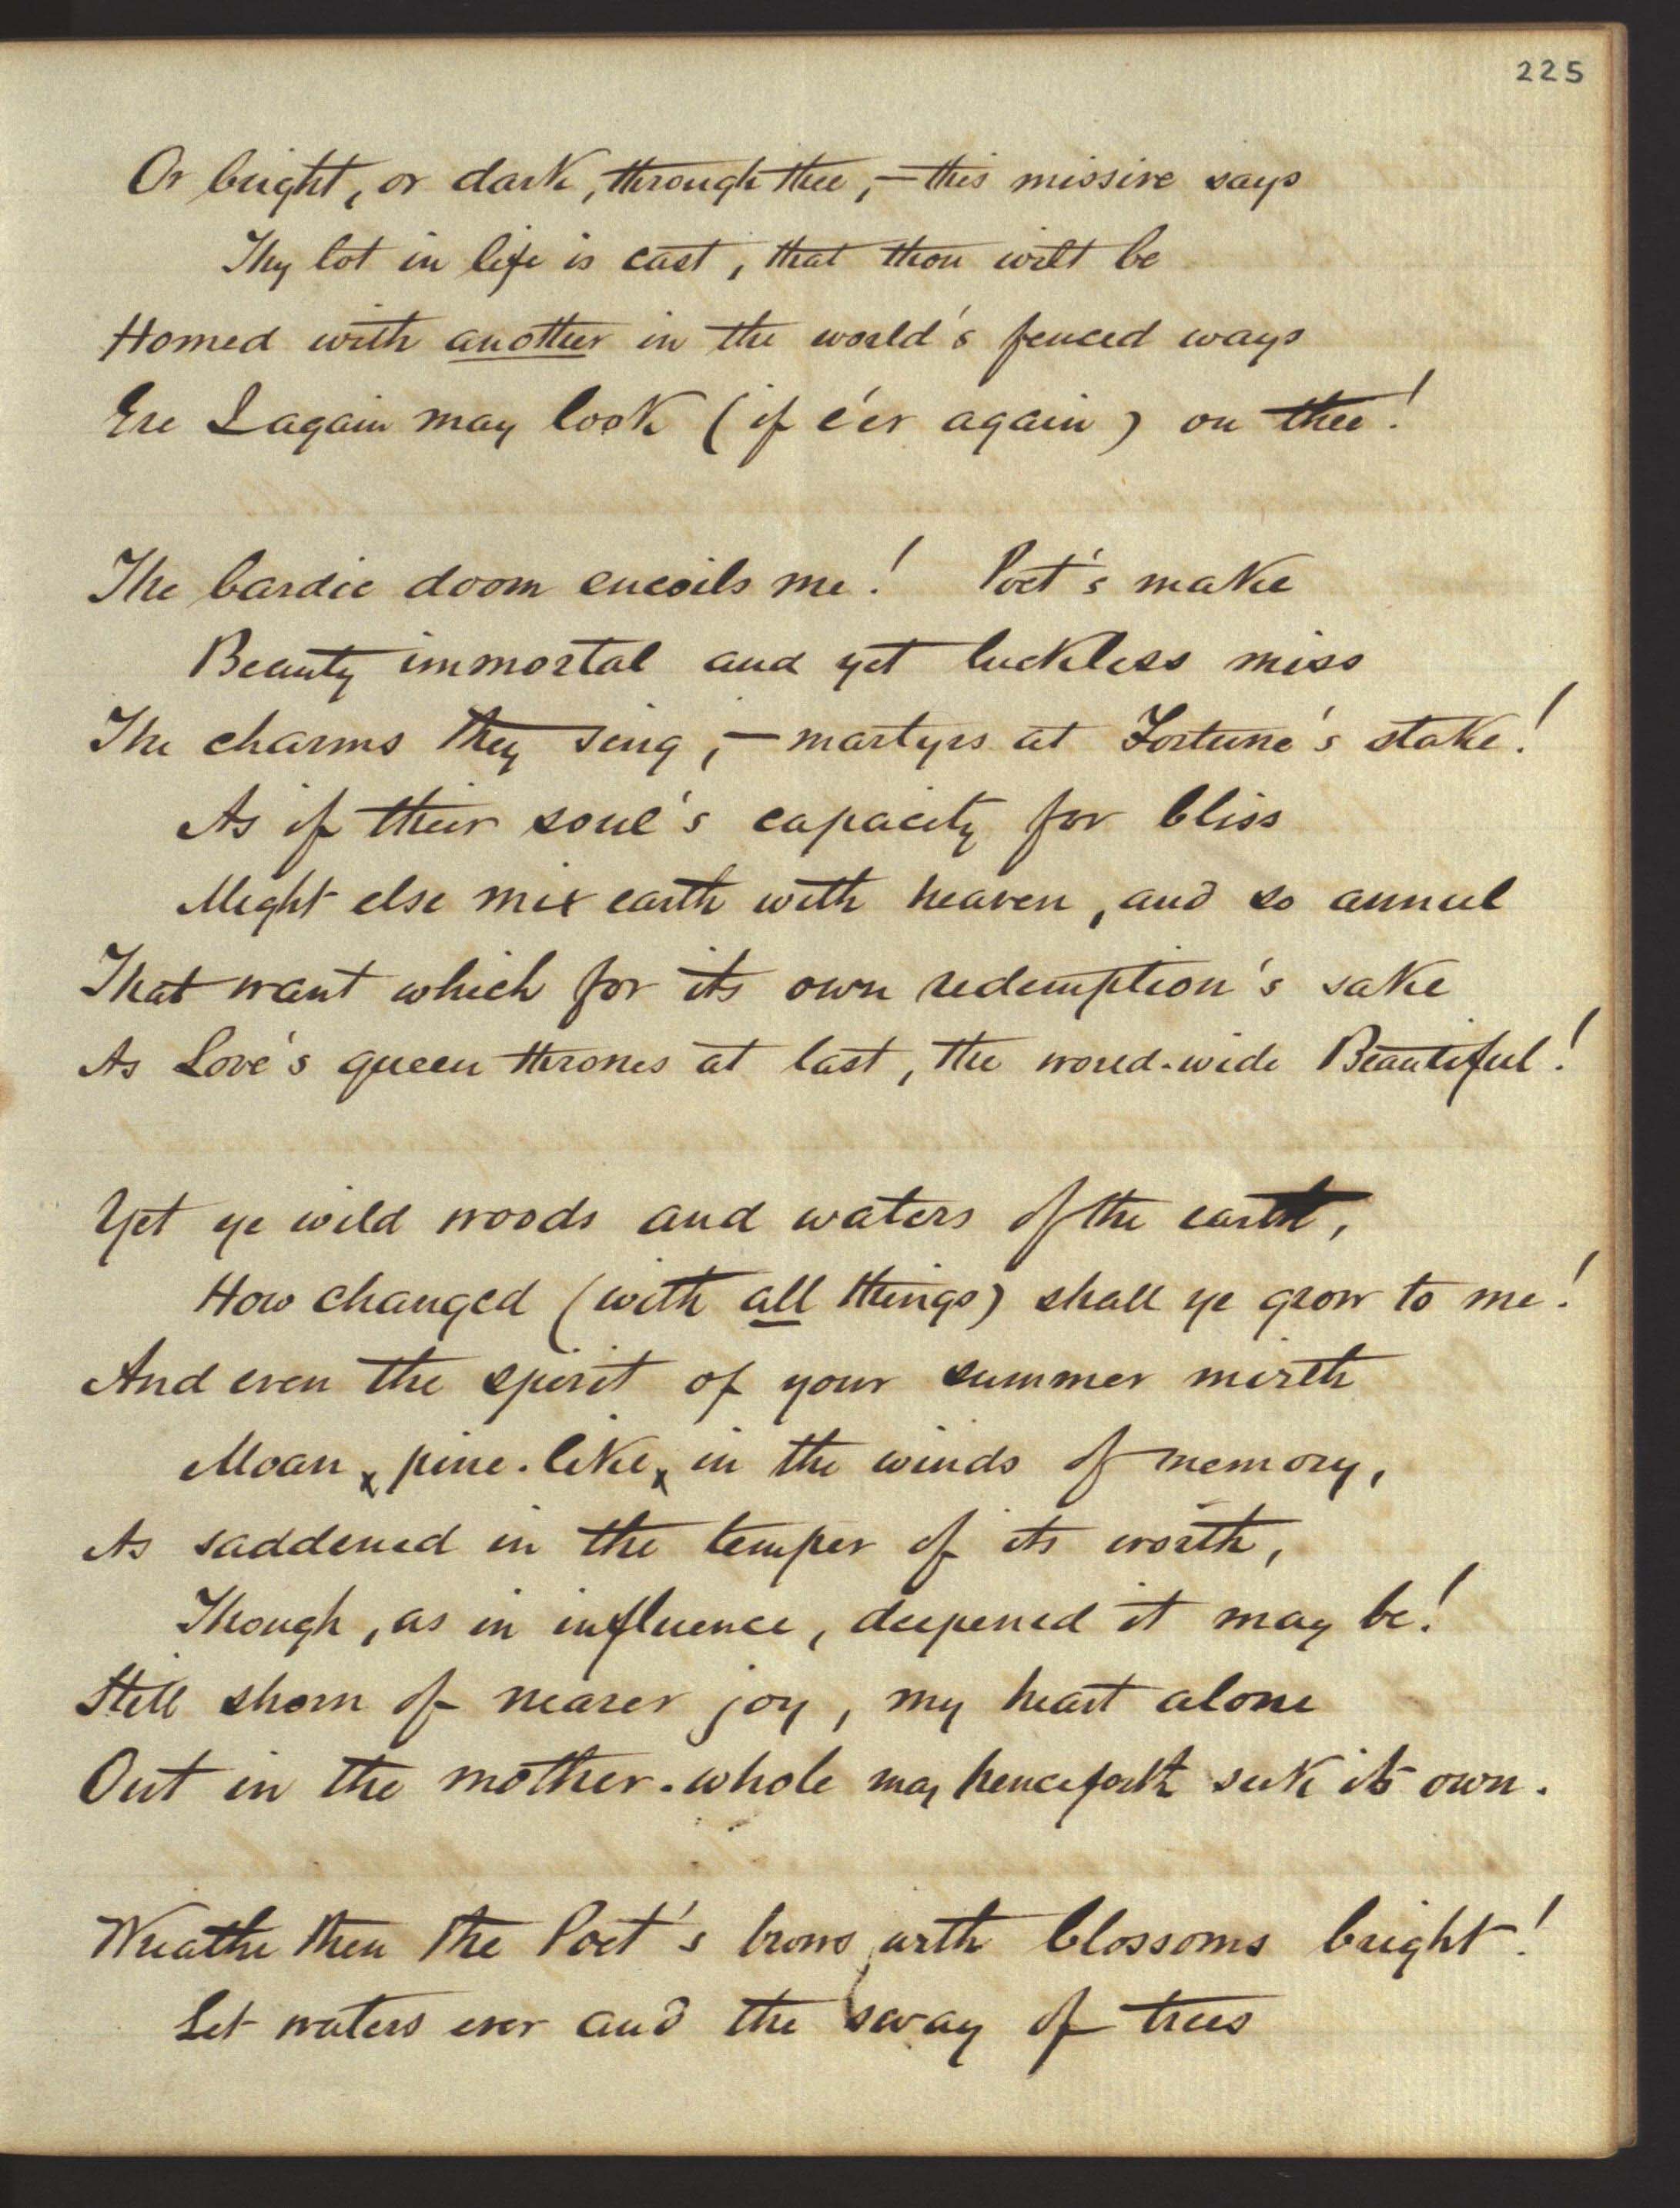 225
Or bright, or dark, through thee;—this missive says
Thy lot in life is cast; that thou wilt be
Homed with another in the world's fenced ways
Ere I again may look (if e'er again) on thee!
The bardic doom encoils me! Poet's make
Beauty immortal and yet luckless miss
The charms they sing;—martyrs at Fortune's stake!
As if their soul's capacity for bliss
Might else mix earth with heaven, and so annul
That want which for its own redemption's sake
As Love's queen thrones at last, the world-wide Beautiful!
Yet ye wild woods and waters of the earth,
How changed (with all things) shall ye grow to me!
And even the spirit of your summer mirth
Moan x pine-like x in the winds of memory,
As saddened in the temper of its worth,
Though, as in influence, deepened it may be!
Still shorn of nearer joy, my heart alone
Out in the mother-whole may henceforth seek its own.
Wreathe then the Poet's brows with blossoms bright!
Let waters ever and the sway of trees